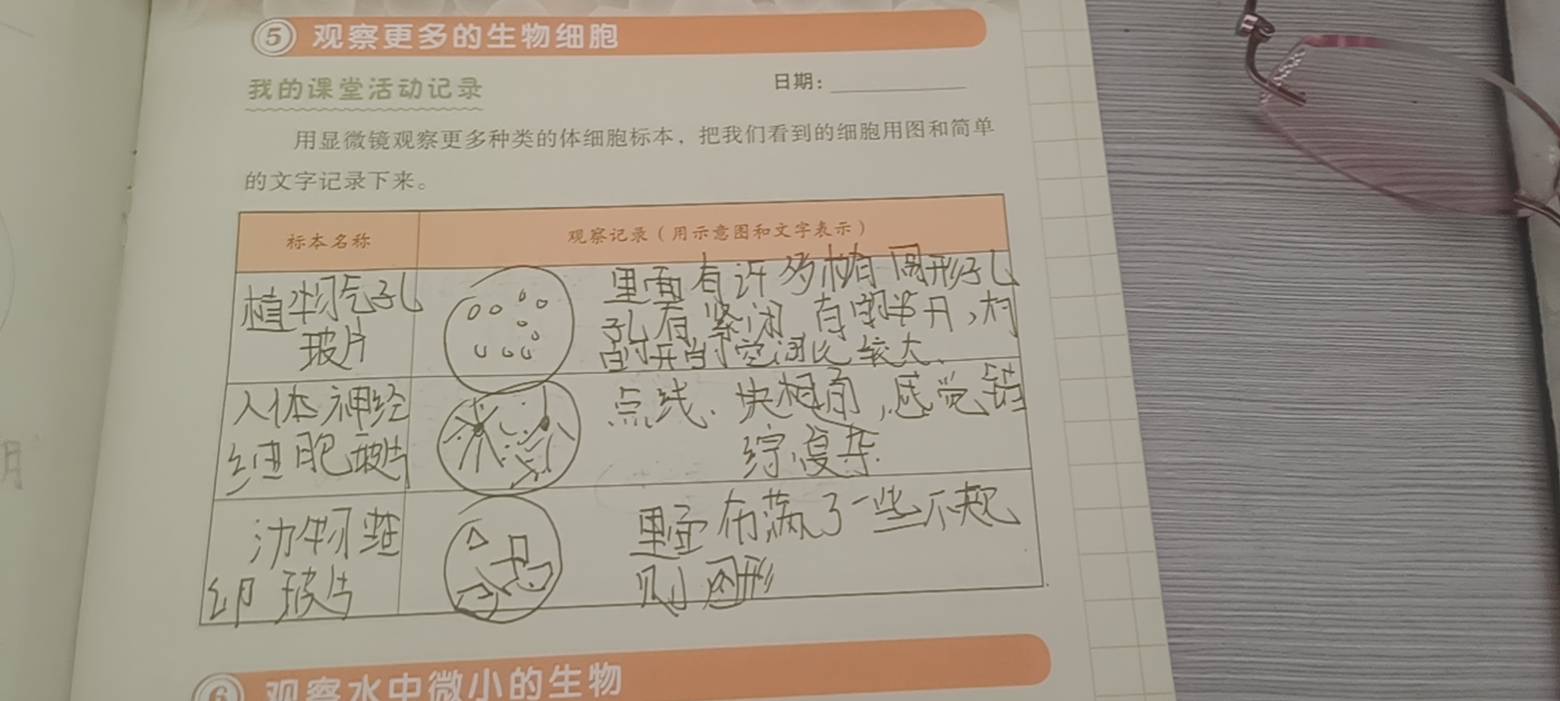 ⑤ 观察更多的生物细胞
我的课堂活动记录
日期：
用显微镜观察更多种类的体细胞标本，把我们看到的细胞用图和简单
的文字记录下来。
标本名称
观察记录（用示意图和文字表示）
植物气孔
玻片
里面有许多 圆形孔
孔有紧闭 有的半开，
的开的空间比较大.
人体神经
细胞玻片
点线、块相间，感觉错
综复杂.
动物
玻片
里面布满了一些不规
则图形
⑥ 观察水中微小的生物
月